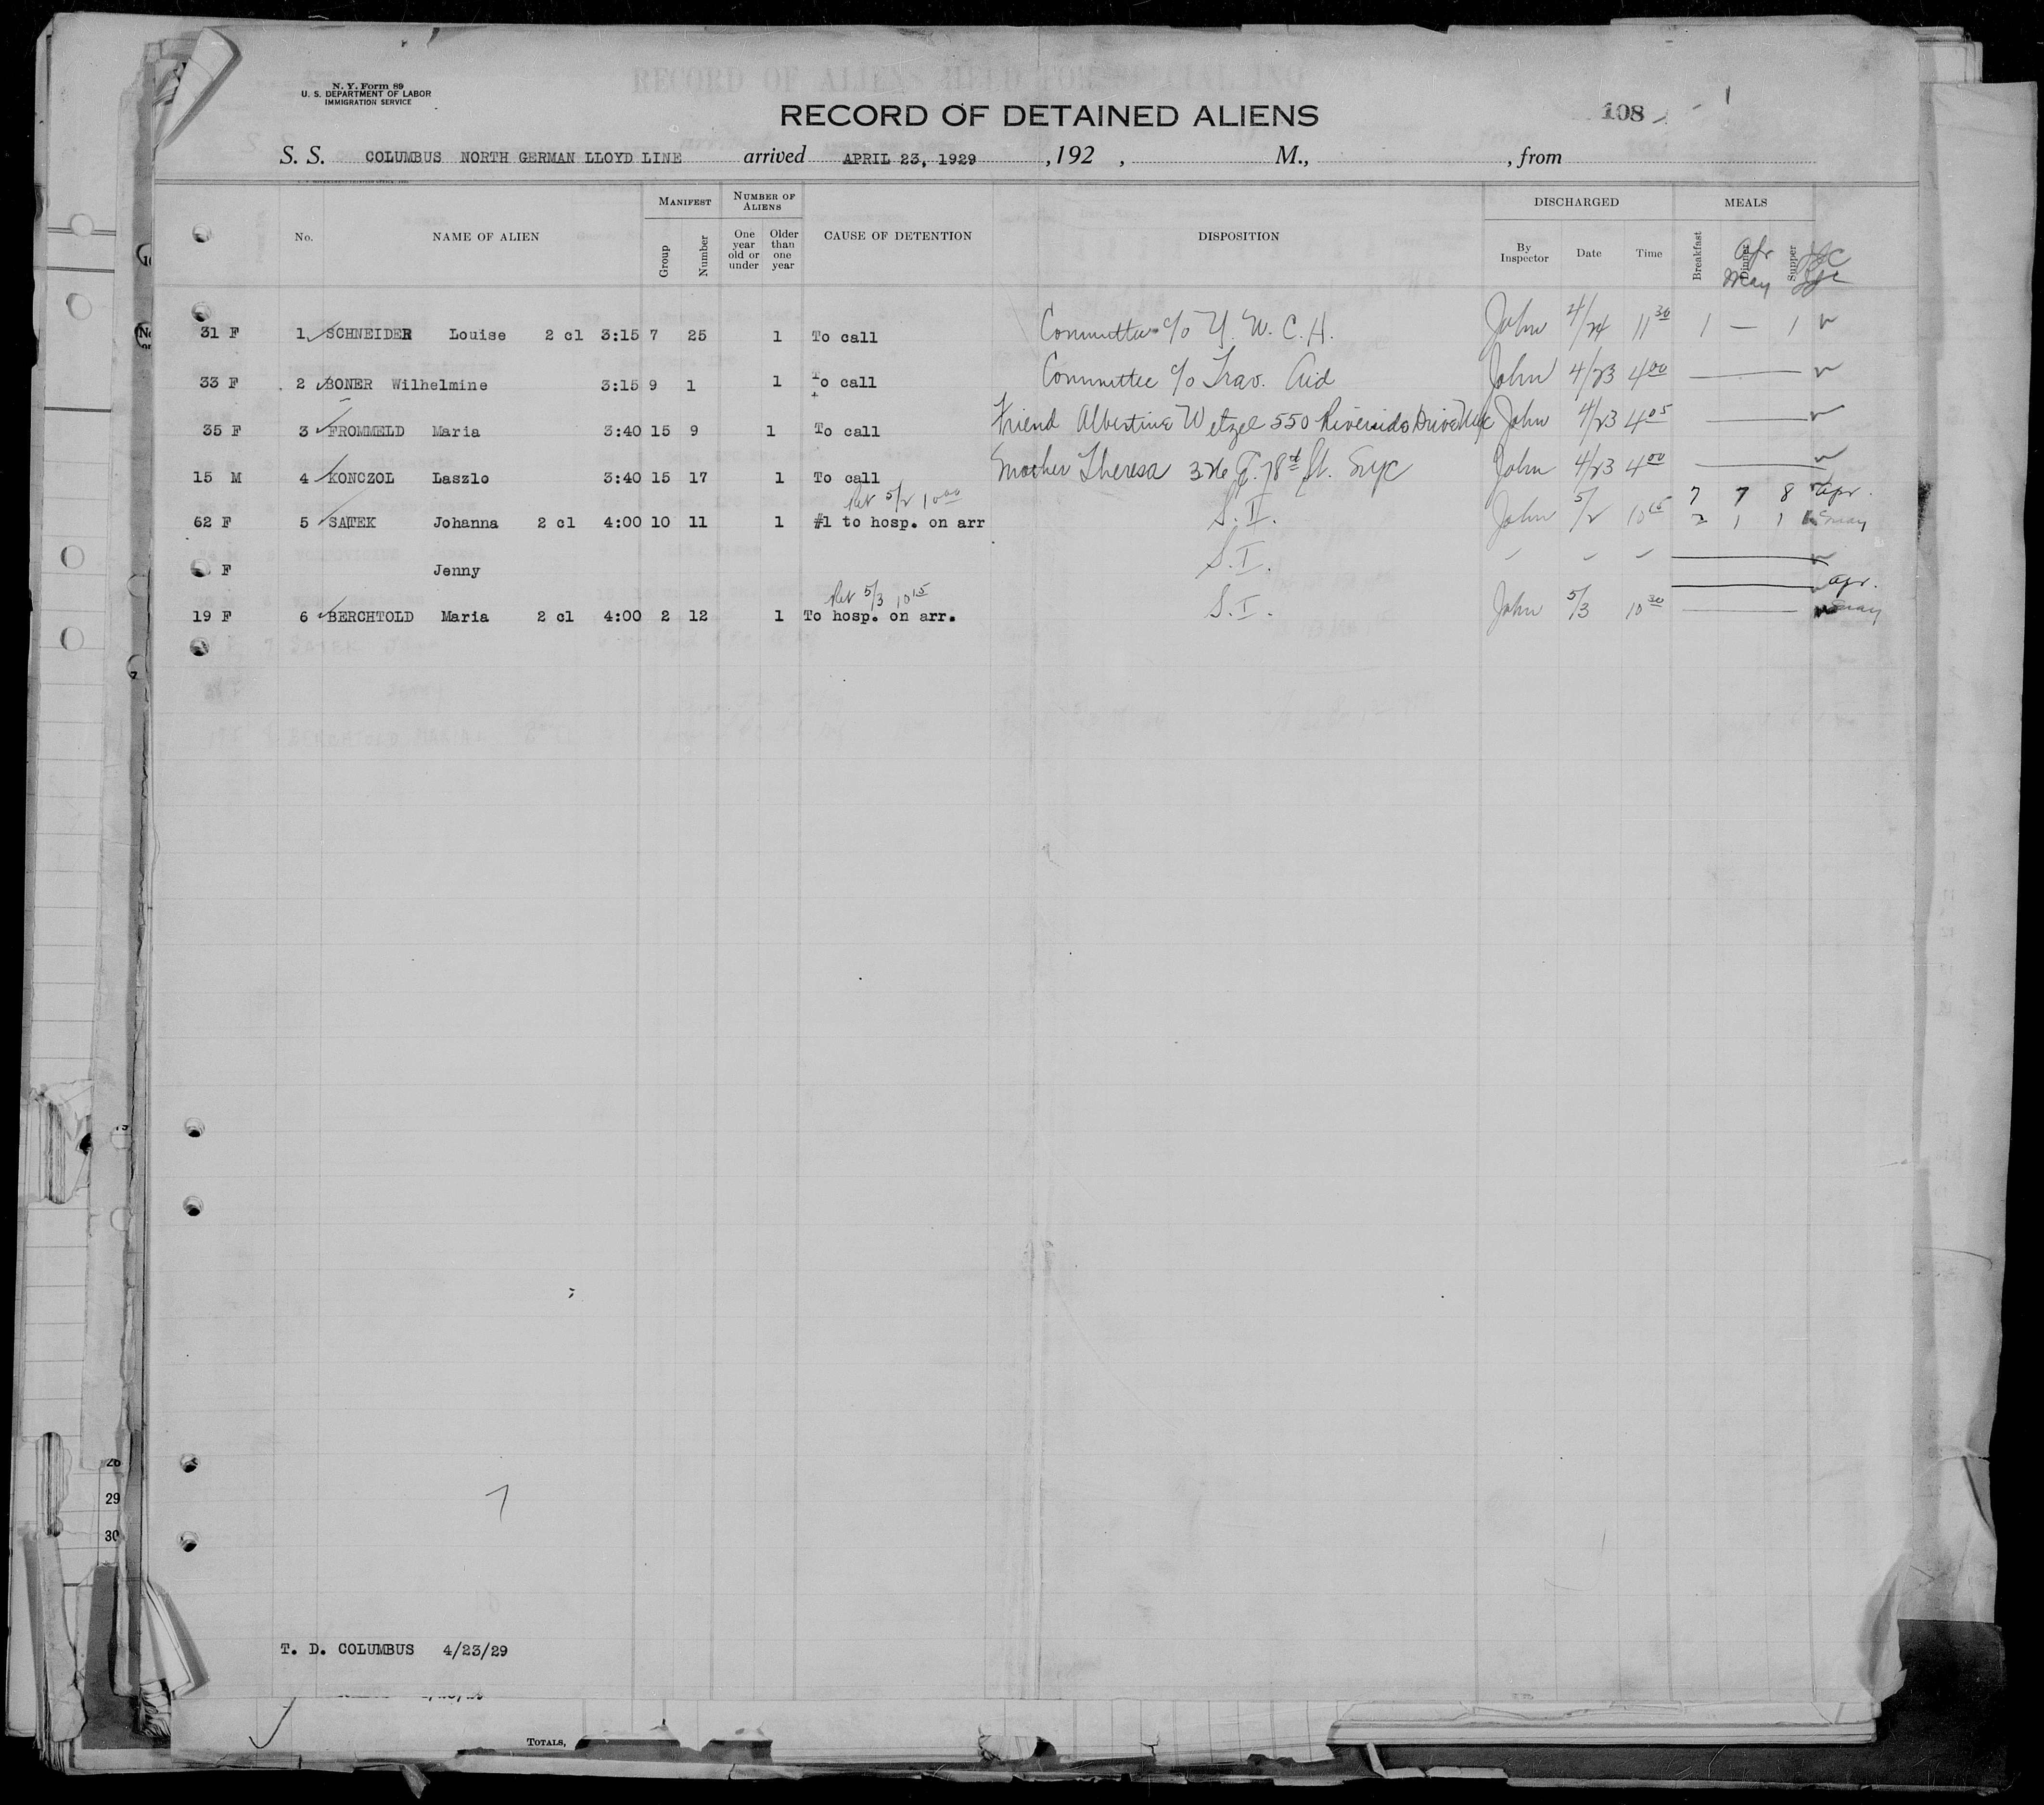 N. Y. Form 89
U. S. DEPARTMENT OF LABOR
IMMIGRATION SERVICE
RECORD OF DETAINED ALIENS
108
S. S. COLUMBUS NORTH GERMAN LLOYD LINE arrived APRIL 23, 1929 , 192 , M., , from
No. NAME OF ALIEN MANIFEST Group Number NUMBER OF ALIENS One year old or under Older than one year CAUSE OF DETENTION DISPOSITION DISCHARGED By Inspector Date Time MEALS Breakfast Dinner Supper
Apr
May
31 F 1 SCHNEIDER Louise 2 cl 3:15 7 25 1 To call Committee c/o Y. W. C. H. John 4/24 11 30 1 — 1
33 F 2 BONER Wilhelmine 3:15 9 1 1 To call Committee c/o Trav. Aid John 4/23 4 00
35 F 3 FROMMELD Maria 3:40 15 9 1 To call Friend Albertine Wetzel 550 Riverside Drive NYC John 4/23 4 05
15 M 4 KONCZOL Laszlo 3:40 15 17 1 To call Mother Theresa 326 E. 78 St. NYC John 4/23 4 00
Ret 5/2 10 00 7 7 8 Apr.
62 F 5 SATEK Johanna 2 cl 4:00 10 11 1 #1 to hosp. on arr S.I. John 5/2 10 15 2 1 1 May
F Jenny S.I.
Ret 5/3 10 15 Apr.
19 F 6 BERCHTOLD Maria 2 cl 4:00 2 12 1 To hosp. on arr. S.I. John 5/3 10 30 May
29
30
T. D. COLUMBUS 4/23/29
TOTALS,